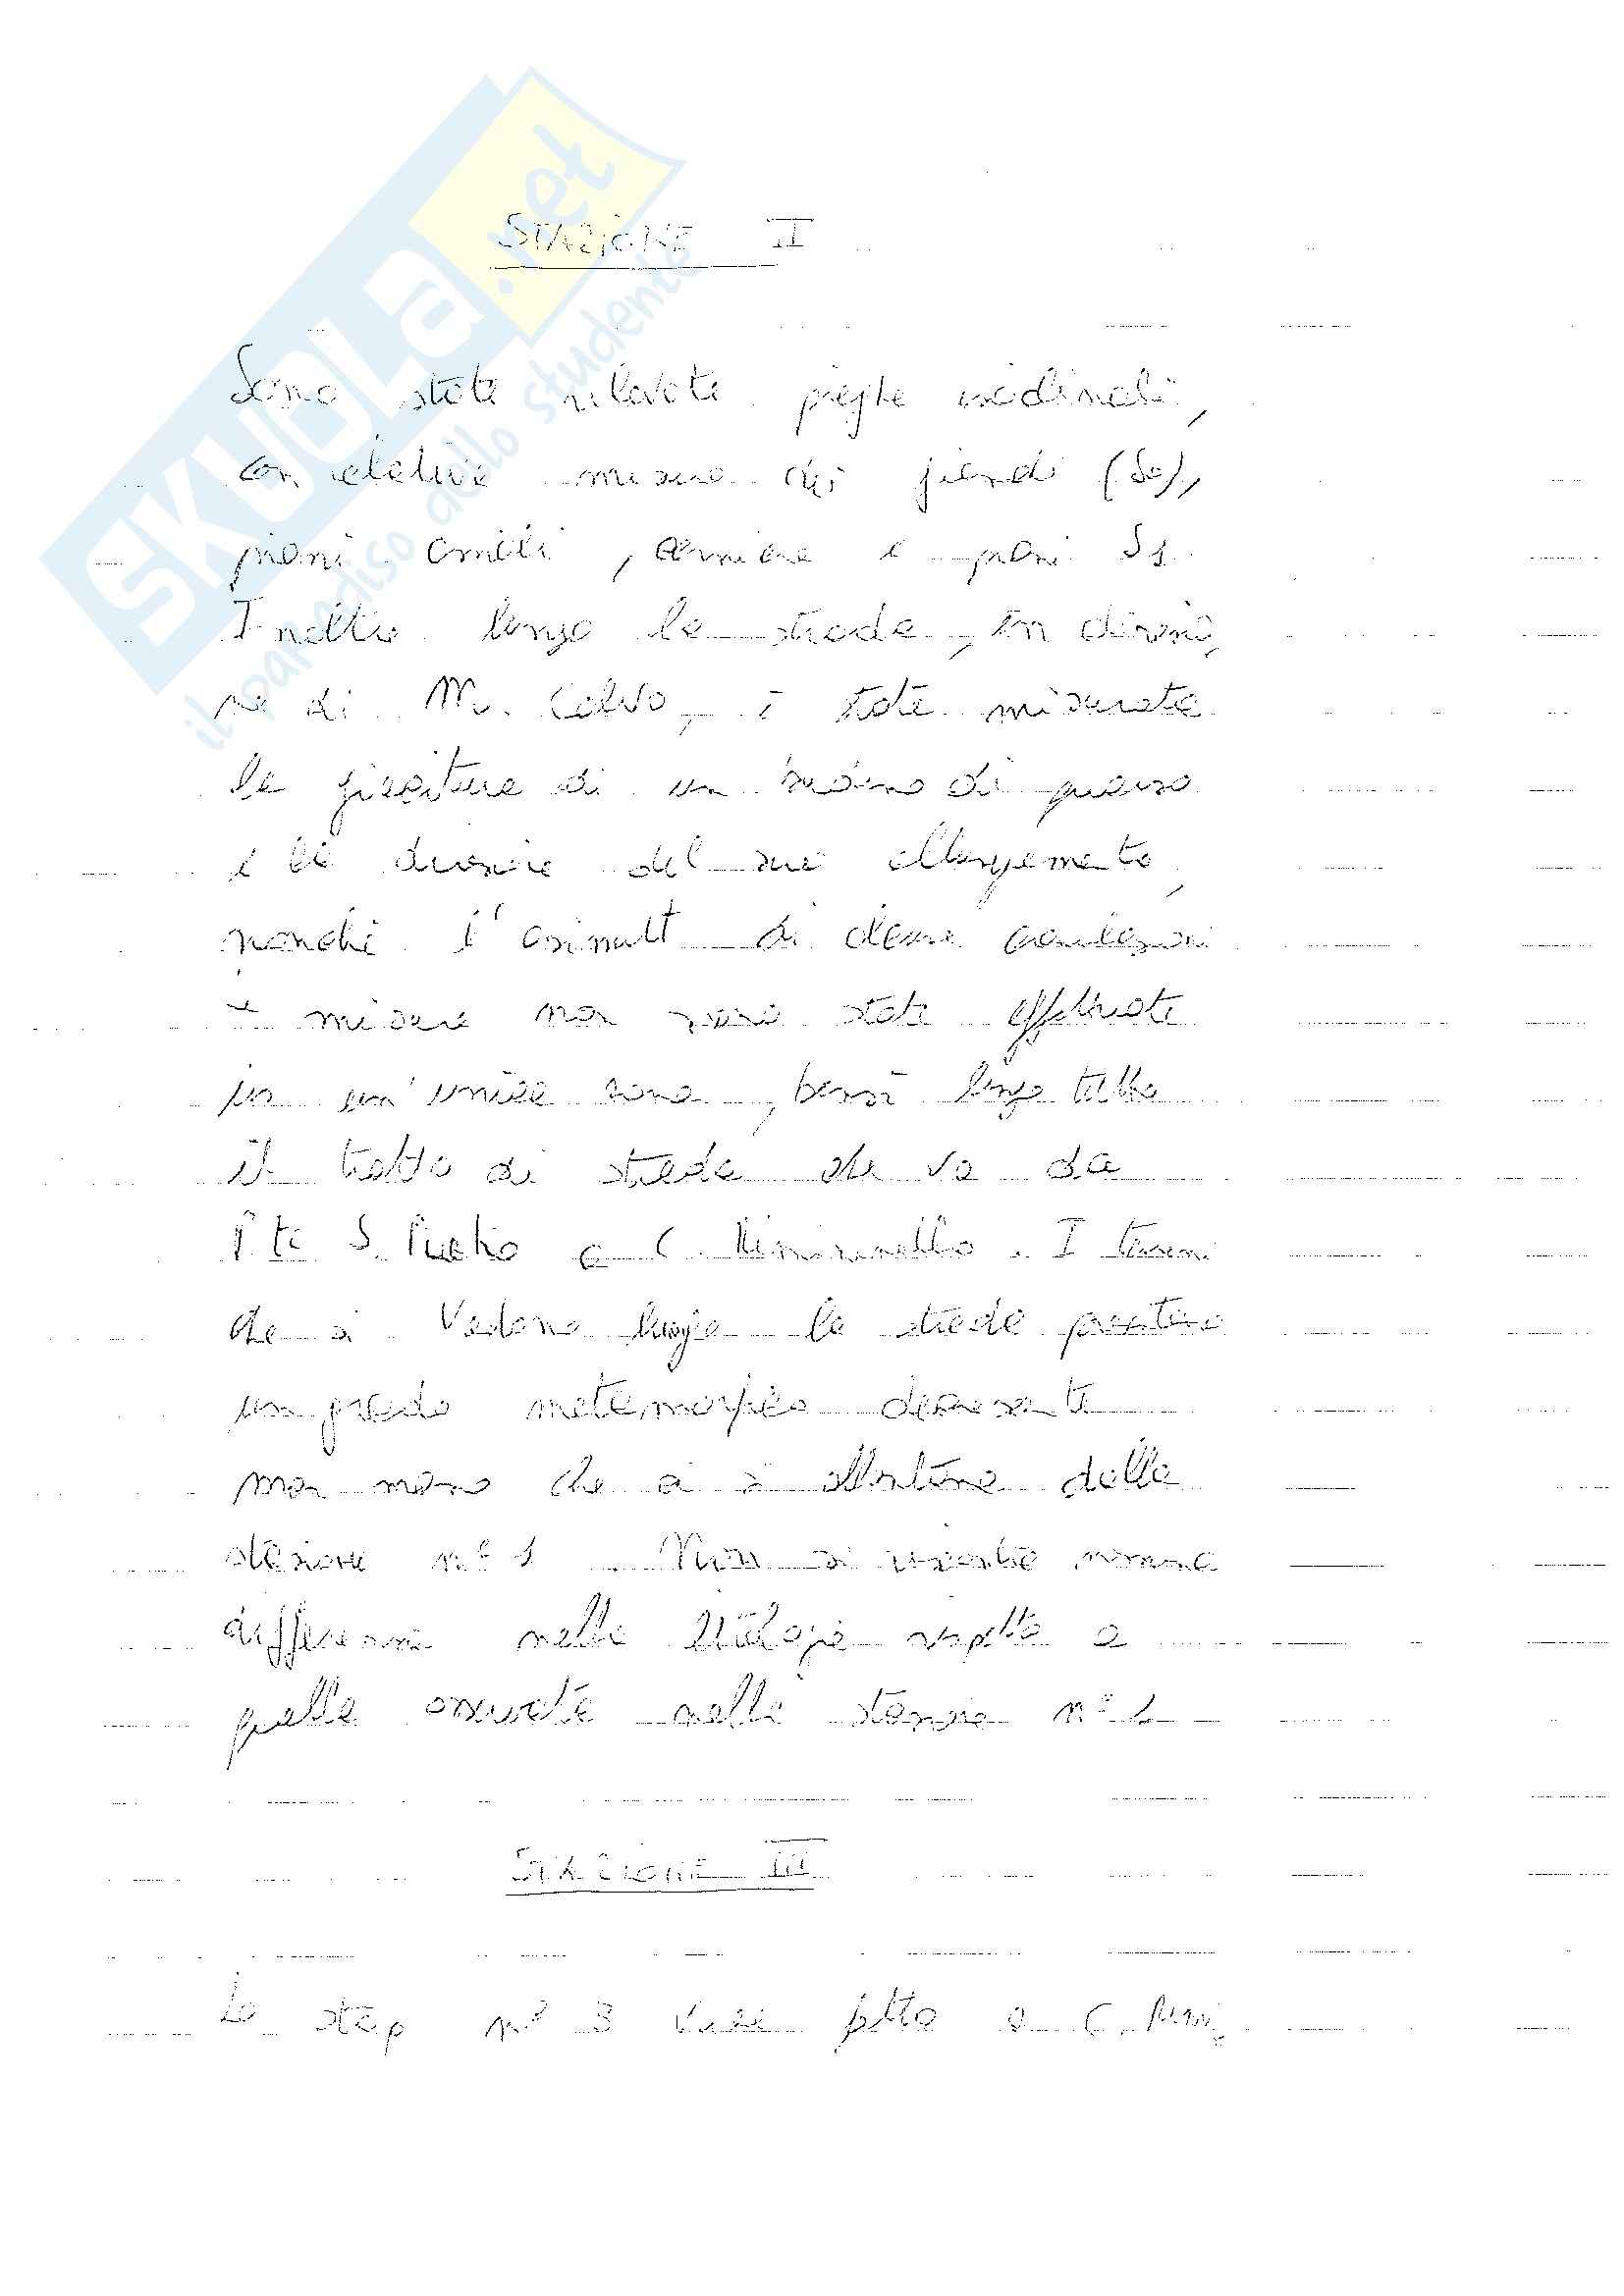 SKUOLA.net
il paradiso dello studente
STAZIONE II
Sono state rilevate pieghe isoclinali,
con relative misure dei fianchi (S0),
piani assiali, cerniere e piani S1.
Inoltre lungo la strada, in direzio,
ne di M. Calvo, è stata misurata
la giacitura di un budino di quarzo
e la direzione del suo allungamento,
nonché l'azimut di alcune
misure non sono state effettuate
in un'unica zona, bensì lungo tutto
il tratto di strada che va da
P.te S. Pietro a C. I terreni
che si vedono lungo la strada presentano
un grado metamorfico decrescente
man mano che ci si allontana dalla
stazione n° 1. Non si riscontra nessuna
differenza nella litologia rispetto a
quella osservata nella stazione n° 1
STAZIONE III
Lo stop n° 3 viene fatto a C.